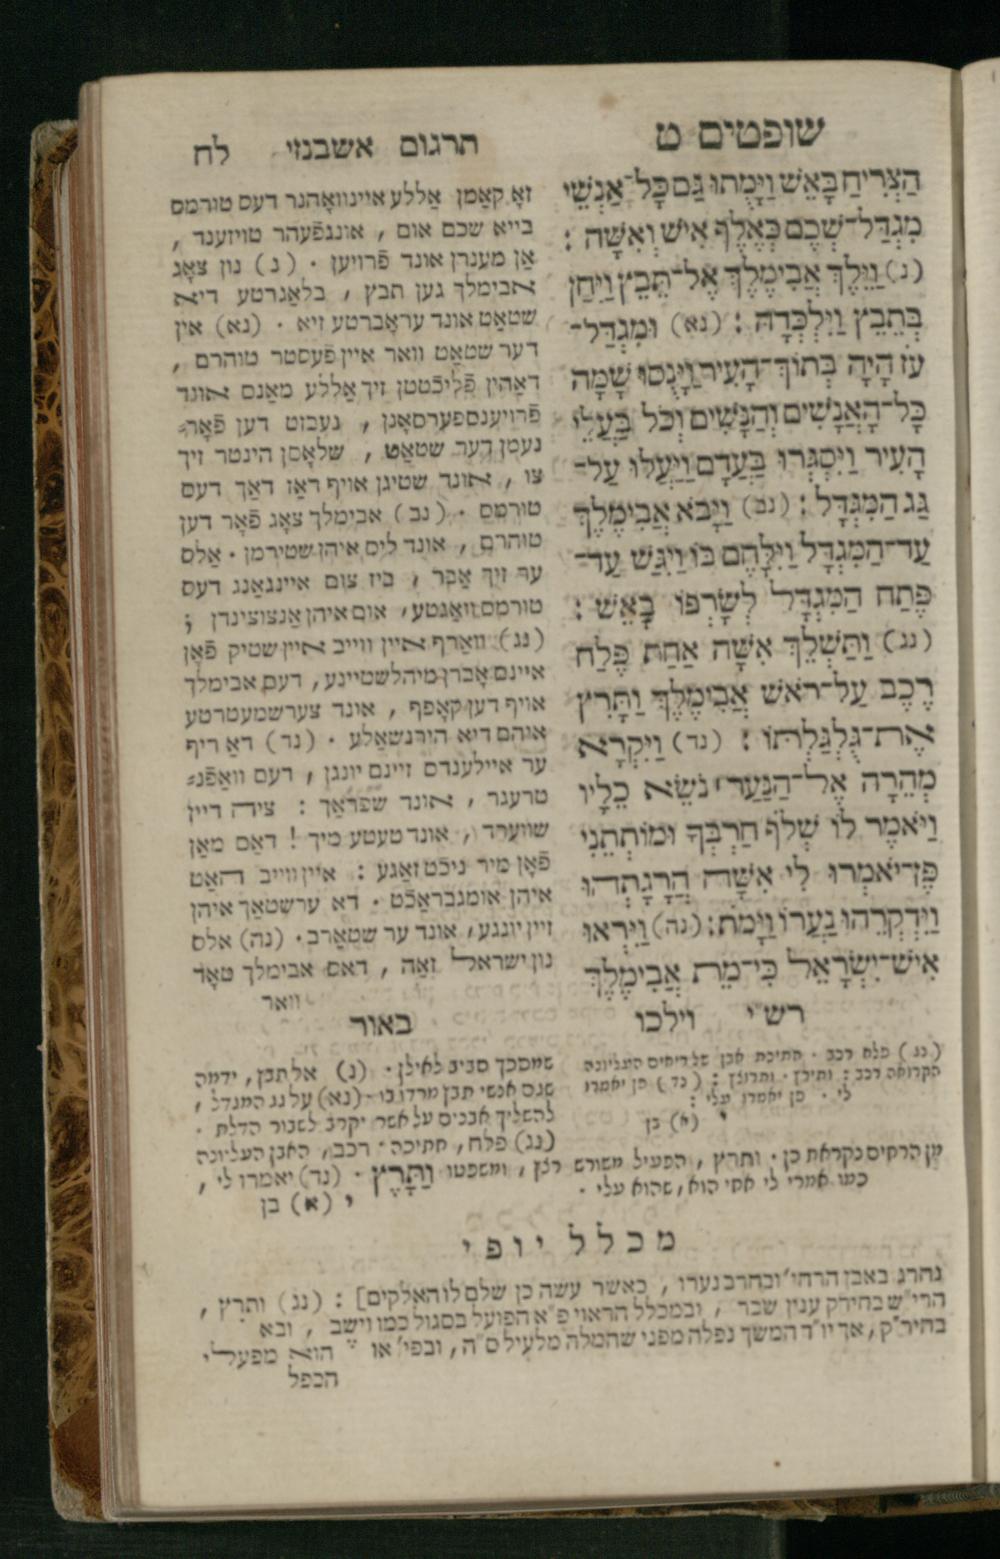 שופטים ט
תרגום אשכנזי
לח
הַצְּרִיחַ בָּאֵשׁ וַיָּמֻתוּ גַּם כָּל־אַנְשֵׁי
מִגְדַּל־שְׁכֶם כְּאֶלֶף אִישׁ וְאִשָּׁה :
(נ) וַיֵּלֶךְ אֲבִימֶלֶךְ אֶל־תֵּבֵץ וַיִּחַן
בְּתֵבֵץ וַיִּלְכְּדָהּ : (נא) וּמִגְדַּל־
עֹז הָיָה בְתוֹךְ־הָעִיר וַיָּנֻסוּ שָׁמָּה
כָּל־הָאֲנָשִׁים וְהַנָּשִׁים וְכֹל בַּעֲלֵי
הָעִיר וַיִּסְגְּרוּ בַּעֲדָם וַיַּעֲלוּ עַל־
גַּג הַמִּגְדָּל : (נב) וַיָּבֹא אֲבִימֶלֶךְ
עַד־הַמִּגְדָּל וַיִּלָּחֶם בּוֹ וַיִּגַּשׁ עַד־
פֶּתַח הַמִּגְדָּל לְשָׂרְפוֹ בָאֵשׁ :
(נג) וַתַּשְׁלֵךְ אִשָּׁה אַחַת פֶּלַח
רֶכֶב עַל־רֹאשׁ אֲבִימֶלֶךְ וַתָּרִץ
אֶת־גֻּלְגַּלְתּוֹ : (נד) וַיִּקְרָא
מְהֵרָה אֶל־הַנַּעַר ׀ נֹשֵׂא כֵלָיו
וַיֹּאמֶר לוֹ שְׁלֹף חַרְבְּךָ וּמוֹתְתֵנִי
פֶּן־יֹאמְרוּ לִי אִשָּׁה הֲרָגָתְהוּ
וַיִּדְקְרֵהוּ נַעֲרוֹ וַיָּמֹת : (נה) וַיִּרְאוּ
אִישׁ־יִשְׂרָאֵל כִּי־מֵת אֲבִימֶלֶךְ
וילכו
זאָ קאַמן אַללע איינוואָהנר דעס טורמס
בייא שכם אום , אונגפֿעהר טויזענד ,
אַן מענרן אונד פֿרויען . (נ) נון צאָג
אבימלך גען תבץ , בלאַגרטע דיא
שטאַט אונד עראָברטע זיא . (נא) אין
דער שטאַט וואר איין פֿעסטר טוהרם ,
דאַהין פֿליכֿטטן זיך אַללע מאַנס אונד
פֿרויענספערסאָנן , נעבזט דען פֿאָר־
נעמן דער שטאַט , שלאָסן הינטר זיך
צו , אונד שטיגן אויף דאַז דאַך דעס
טורמס . (נב) אבימלך צאָג פֿאָר דען
טוהרם , אונד ליס איהן שטירמן . אלס
ער זיך אַבר , ביז צום איינגאַנג דעס
טורמס וואַגטע , אום איהן אַנצוצינדן ;
(נג) וואַרף איין ווייב איין שטיק פֿאָן
איינם אָברן מיהלשטיינע , דעם אבימלך
אויף דען קאָפף , אונד צערשמעטרטע
איהם דיא הירנשאַלע . (נד) דאַ ריף
ער איילענדס זיינם יונגן , דעם וואַפֿנ־
טרעגר , אונד שפראַך : ציה דיין
שווערד , אונד טעטע מיך ! דאַס מאַן
פֿאָן מיר ניכֿט זאַגע : איין ווייב האַט
איהן אומגבראַכֿט . דא ערשטאַך איהן
זיין יונגע , אונד ער שטאַרב . (נה) אלס
נון ישראל זאַה , דאס אבימלך טאָד
וואר
רש״י
(נג) פלח רכב . חתיכת אבן של ריחים העליונה
הקרואה רכב : ותרץ . ותרוצץ : (נד) פן יאמרו
לי . פן יאמרו עלי :
י (א) בן
באור
שמסכך סביב לאילן . (נ) אל תבץ , ידמה
שגם אנשי תבץ מרדו בו . (נא) על גג המגדל ,
להשליך אבנים על אשר יקרב לשבור הדלת .
(נג) פלח , חתיכה . רכב , האבן העליונה
מן הרחים נקראת כן . ותרץ , הפעיל משורש רצץ , ומשפטו וַתָּרֶץ . (נד) יאמרו לי ,
כמו אמרי לי אחי הוא , שהוא עלי .
י (א) בן
מכלל יופי
נהרג באבן הרחי׳ ובחרב נערו , כאשר עשה כן שלם לו האלקים] : (נג) ותרץ ,
הרי״ש בחירק ענין שבר , ובמכלל הראוי פ״א הפועל בסגול כמו וישב , ובא
בחיר״ק , אך יו״ד המשך נפלה מפני שהמלה מלעיל ס״ה , ובפי׳ או הוא מפעלי
הכפל